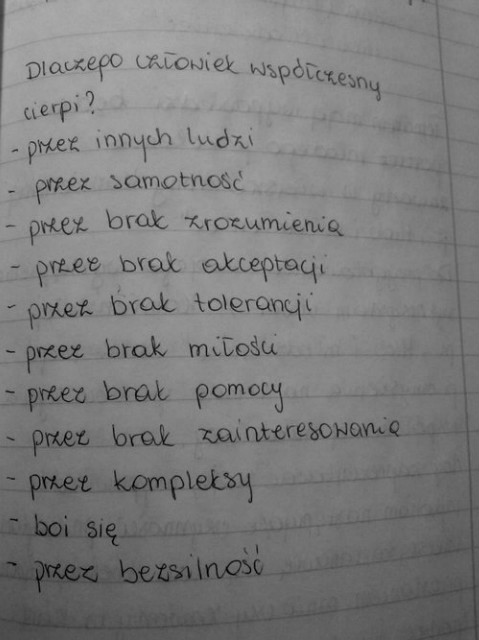 Dlaczego człowiek współczesny
cierpi?
- przez innych ludzi
- przez samotność
- przez brak zrozumienia
- przez brak akceptacji
- przez brak tolerancji
- przez brak miłości
- przez brak pomocy
- przez brak zainteresowania
- przez kompleksy
- boi się
- przez bezsilność